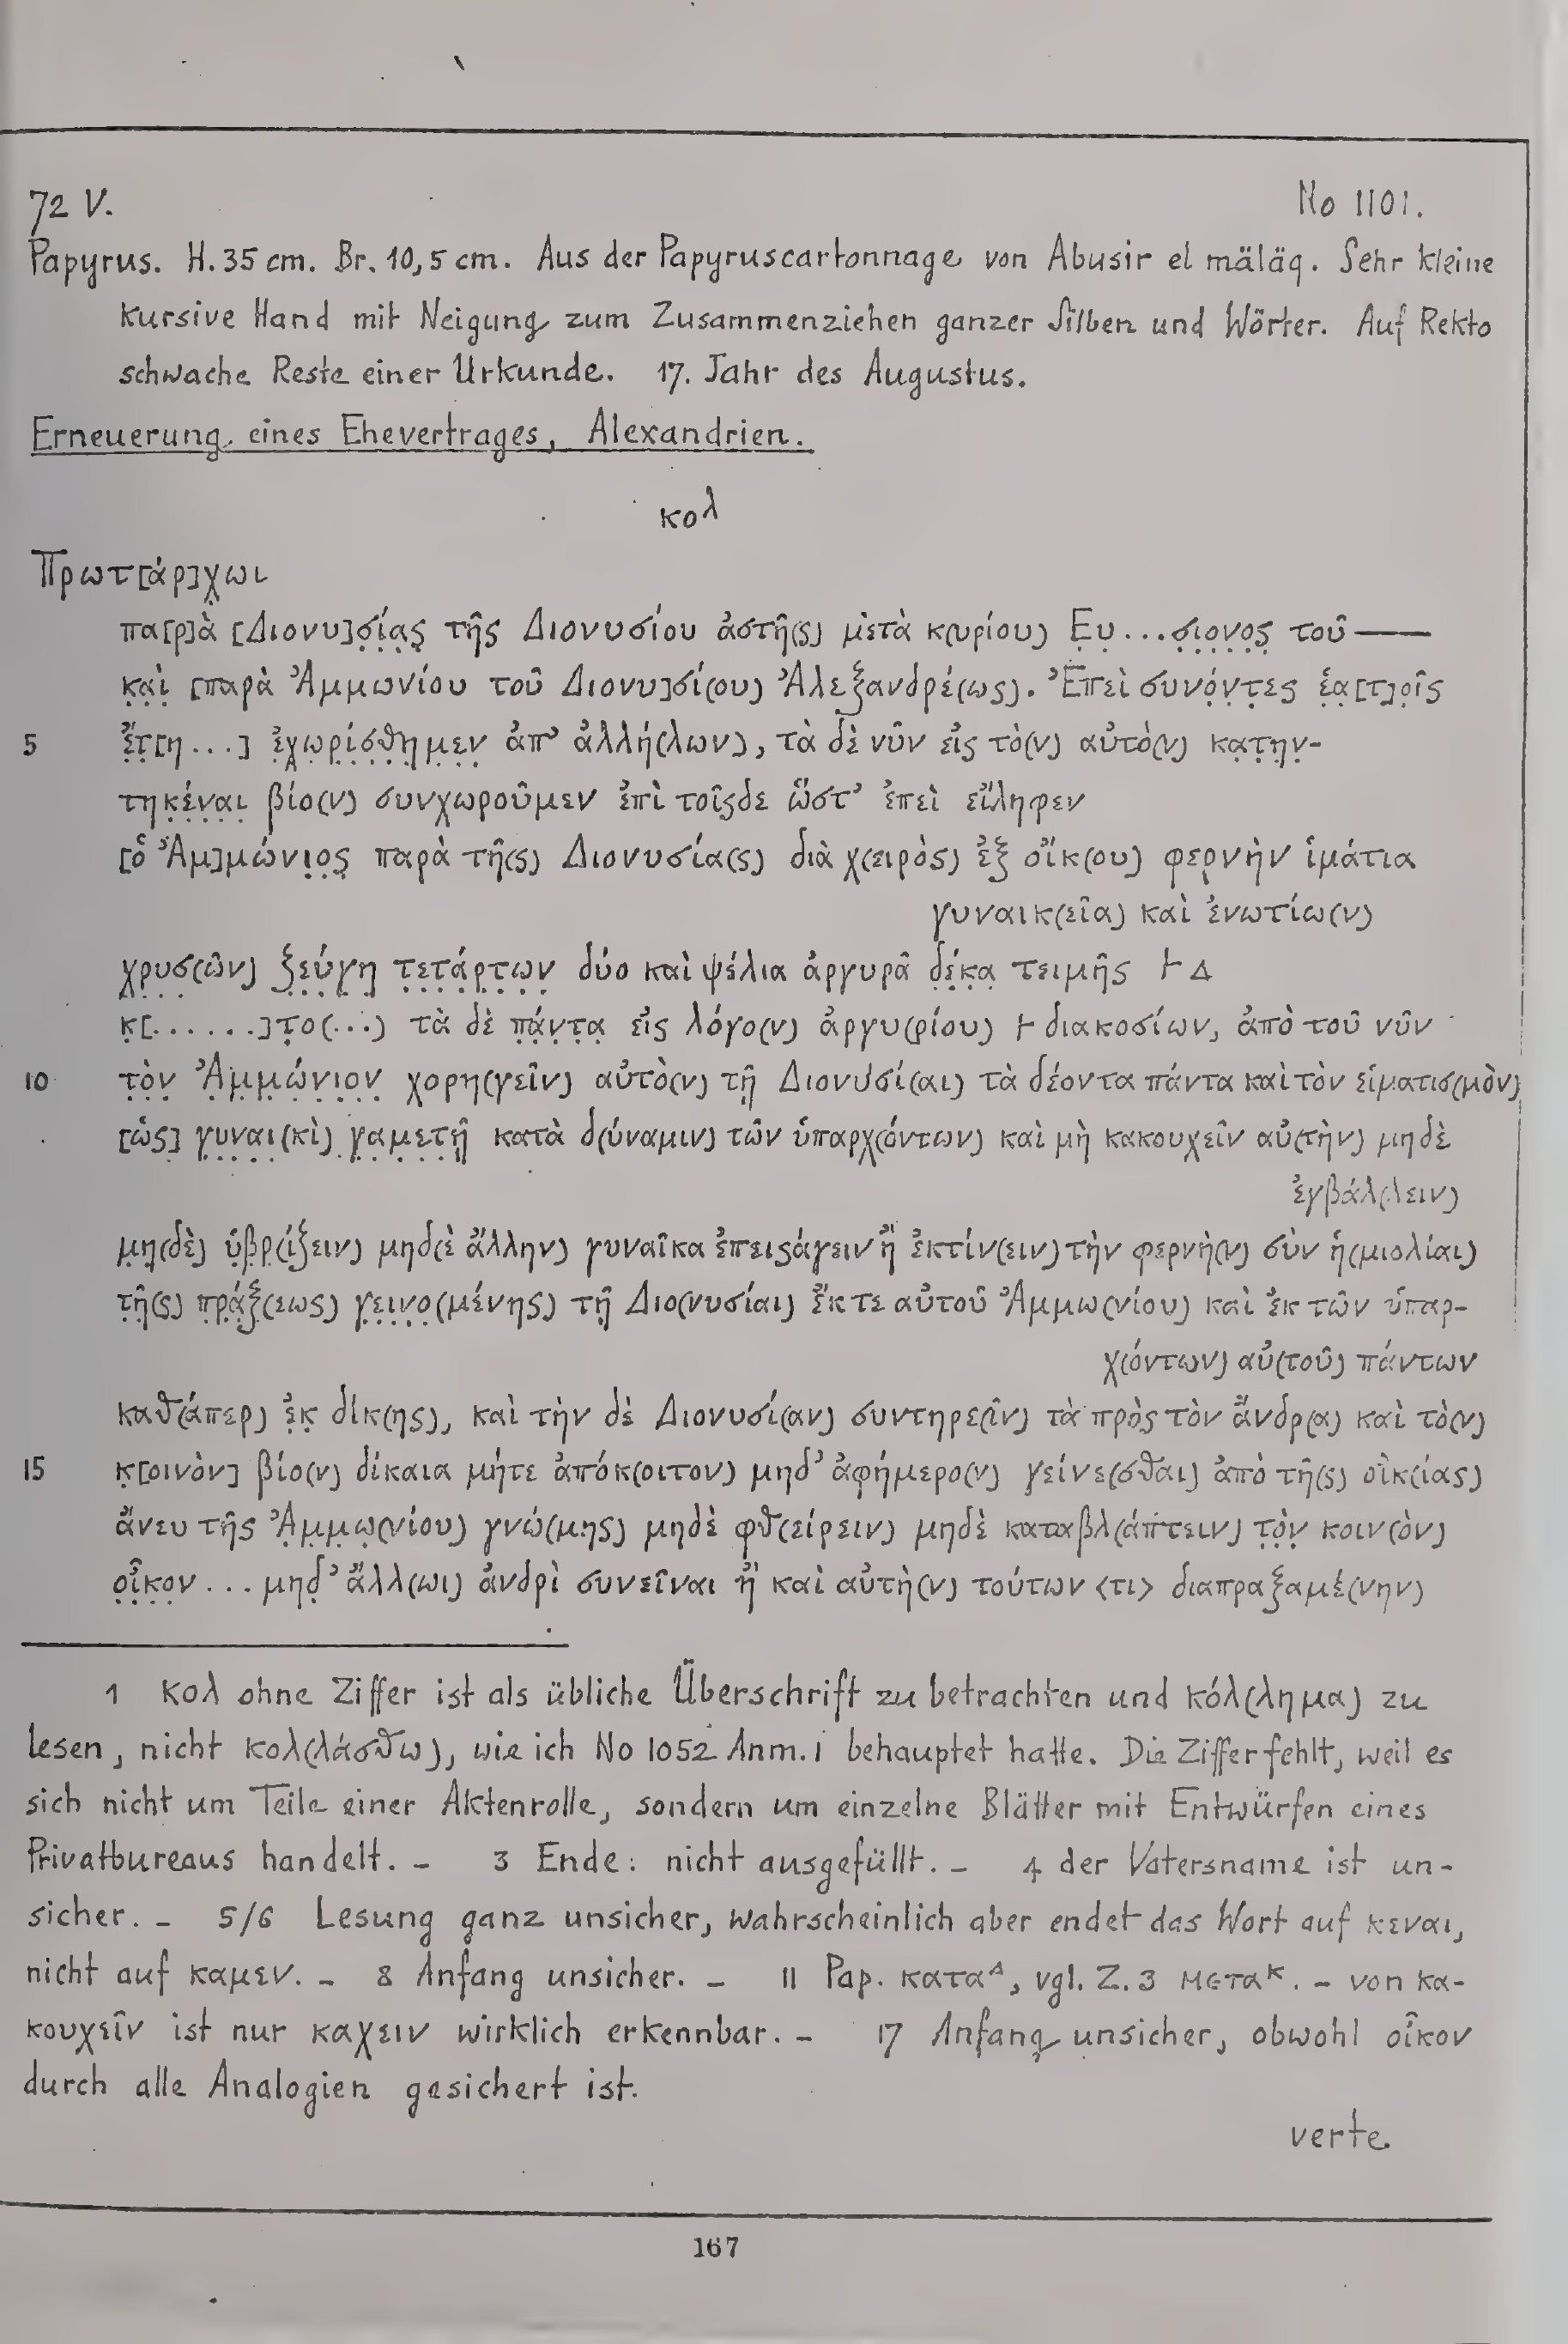 72 V. No 1101.
Papyrus. H. 35 cm. Br. 10,5 cm. Aus der Papyruscartonnage von Abusir el mäläq. Sehr kleine
kursive Hand mit Neigung zum Zusammenziehen ganzer Silben und Wörter. Auf Rekto
schwache Reste einer Urkunde. 17. Jahr des Augustus.
Erneuerung eines Ehevertrages, Alexandrien.
κολ
Πρωτ[άρ]χωι
πα[ρ]ὰ [Διονυ]σίας τῆς Διονυσίου ἀστῆ(ς) μετὰ κ(υρίου) Ευ...σιονος τοῦ ——
καὶ [παρὰ Ἀμμωνίου τοῦ Διονυ]σί(ου) Ἀλεξανδρέ(ως). Ἐπεὶ συνόντες ἑα[τ]οῖς
5 ἔτ[η ...] ἐχωρίσθημεν ἀπ' ἀλλή(λων), τὰ δὲ νῦν εἰς τὸ(ν) αὐτὸ(ν) κατην-
τηκέναι βίο(ν) συνχωροῦμεν ἐπὶ τοῖςδε ὥστ' ἐπεὶ εἴληφεν
[ὁ Ἀμ]μώνιος παρὰ τῆ(ς) Διονυσία(ς) διὰ χ(ειρὸς) ἐξ οἴκ(ου) φερνὴν ἱμάτια
γυναικ(εῖα) καὶ ἐνωτίω(ν)
χρυσ(ῶν) ξεύγη τετάρτων δύο καὶ ψέλια ἀργυρᾶ δέκα τειμῆς 𐅂 Δ
κ[......]το(...) τὰ δὲ πάντα εἰς λόγο(ν) ἀργυ(ρίου) 𐅂 διακοσίων, ἀπὸ τοῦ νῦν
10 τὸν Ἀμμώνιον χορη(γεῖν) αὐτὸ(ν) τῇ Διονυσί(αι) τὰ δέοντα πάντα καὶ τὸν εἱματισ(μὸν)
[ὡς] γυναι(κὶ) γαμετῇ κατὰ δ(ύναμιν) τῶν ὑπαρχ(όντων) καὶ μὴ κακουχεῖν αὐ(τὴν) μηδὲ
ἐγβάλ(λειν)
μη(δὲ) ὑβρ(ίζειν) μηδ(ὲ ἄλλην) γυναῖκα ἐπειςάγειν ἢ ἐκτίν(ειν) τὴν φερνὴ(ν) σὺν ἡ(μιολίαι)
τῆ(ς) πράξ(εως) γεινο(μένης) τῇ Διο(νυσίαι) ἔκ τε αὐτοῦ Ἀμμω(νίου) καὶ ἐκ τῶν ὑπαρ-
χ(όντων) αὐ(τοῦ) πάντων
καθ(άπερ) ἐκ δίκ(ης), καὶ τὴν δὲ Διονυσί(αν) συντηρε(ῖν) τὰ πρὸς τὸν ἄνδρ(α) καὶ τὸ(ν)
15 κ[οινὸν] βίο(ν) δίκαια μήτε ἀπόκ(οιτον) μηδ' ἀφήμερο(ν) γείνε(σθαι) ἀπὸ τῆ(ς) οἰκ(ίας)
ἄνευ τῆς Ἀμμω(νίου) γνώ(μης) μηδὲ φθ(είρειν) μηδὲ καταβλ(άπτειν) τὸν κοιν(ὸν)
οἶκον ... μηδ' ἄλλ(ωι) ἀνδρὶ συνεῖναι ἢ καὶ αὐτὴ(ν) τούτων <τι> διαπραξαμέ(νην)
1 κολ ohne Ziffer ist als übliche Überschrift zu betrachten und κόλ(λημα) zu
lesen, nicht κολ(λάσθω), wie ich No 1052 Anm. 1 behauptet hatte. Die Ziffer fehlt, weil es
sich nicht um Teile einer Aktenrolle, sondern um einzelne Blätter mit Entwürfen eines
Privatbureaus handelt. – 3 Ende: nicht ausgefüllt. – 4 der Vatersname ist un-
sicher. – 5/6 Lesung ganz unsicher, wahrscheinlich aber endet das Wort auf κεναι,
nicht auf καμεν. – 8 Anfang unsicher. – 11 Pap. κατα^Δ, vgl. Z. 3 μετα^κ. – von κα-
κουχεῖν ist nur καχειν wirklich erkennbar. – 17 Anfang unsicher, obwohl οἶκον
durch alle Analogien gesichert ist.
verte.
167